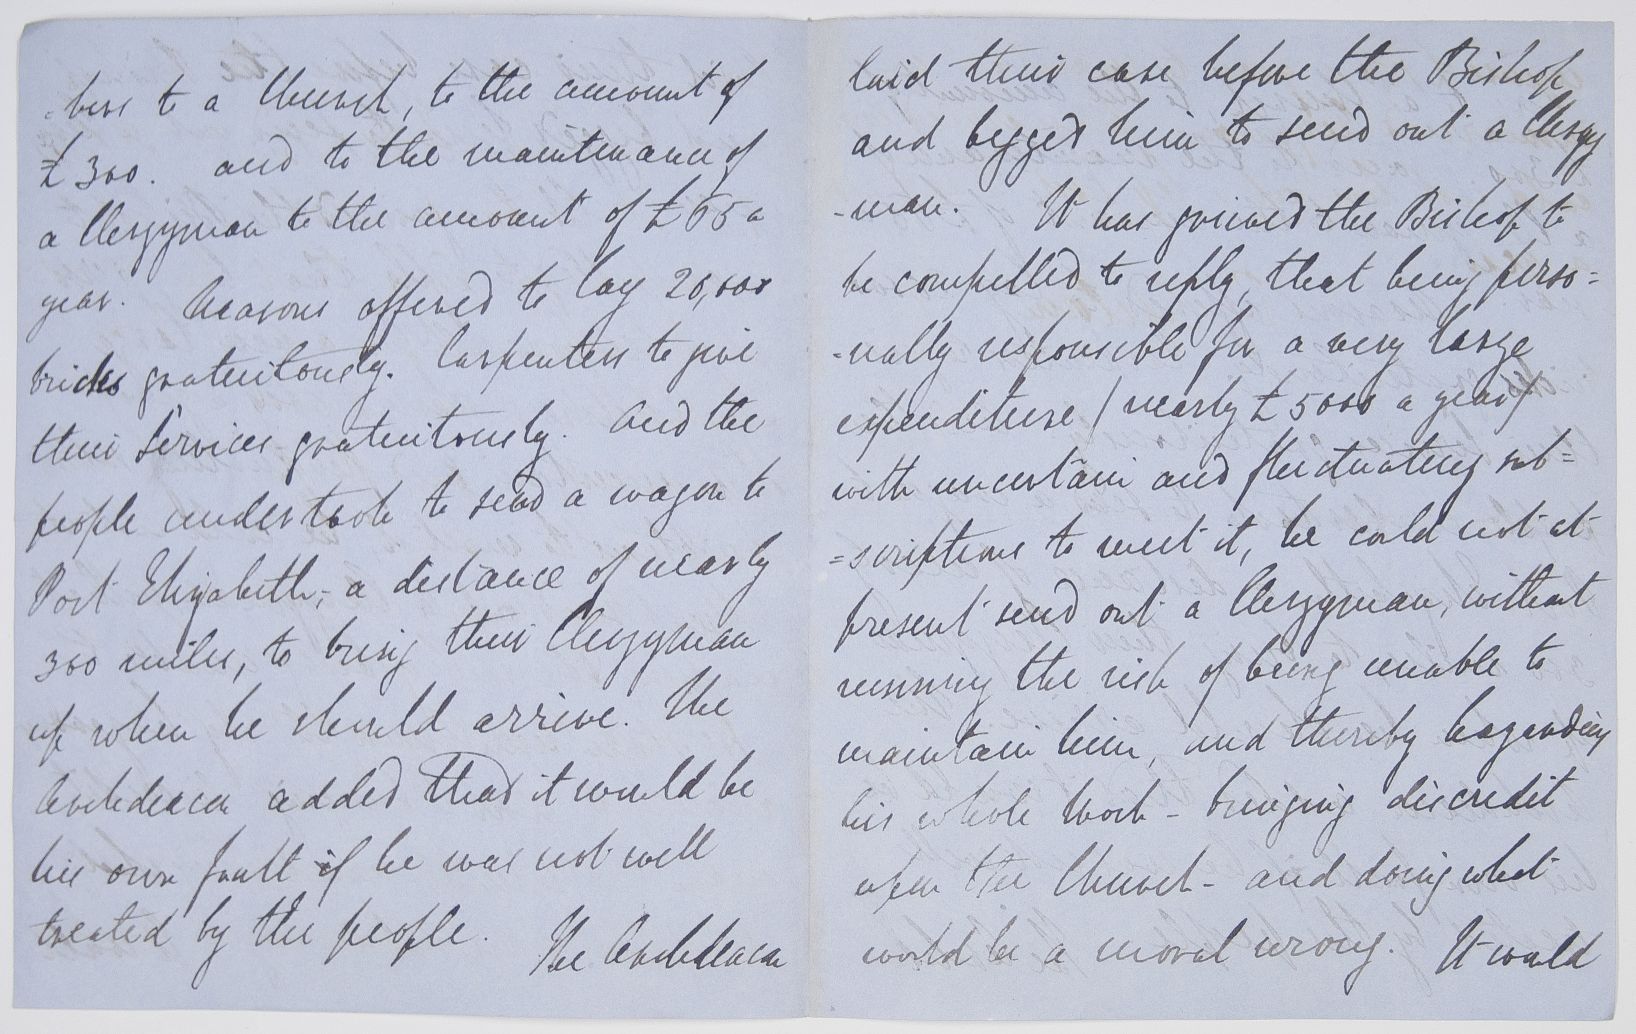 =bers to a Church, to the amount of
£300. and to the maintenance of
a Clergyman to the amount of £65 a
year. Masons offered to lay 20,000
bricks gratuitously. Carpenters to give
their services gratuitously. And the
people undertook to send a wagon to
Port Elizabeth, a distance of nearly
300 miles, to bring their Clergyman
up when he should arrive. The
Archdeacon added that it would be
his own fault if he was not well
treated by the people. The Archdeacon
laid their case before the Bishop
and begged him to send out a Clergy
-man. It has grieved the Bishop to
be compelled to reply, that being perso=
-nally responsible for a very large
expenditure (nearly £5000 a year)
with uncertain and fluctuating sub=
=scriptions to meet it, he could not at
present send out a Clergyman, without
running the risk of being unable to
maintain him, and thereby hazarding
his whole work - bringing discredit
upon the Church - and doing what
would be a moral wrong. It would